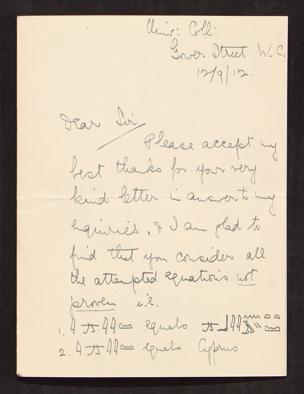 Univ: Coll:
Gower Street W.C.
12/9/12.
Dear Sir,
Please accept my
best thanks for your very
kind letter in answer to my
enquiries, & I am glad to
find that you consider all
the attempted equations not
proven i.e.
1. equals
2. equals Cyprus